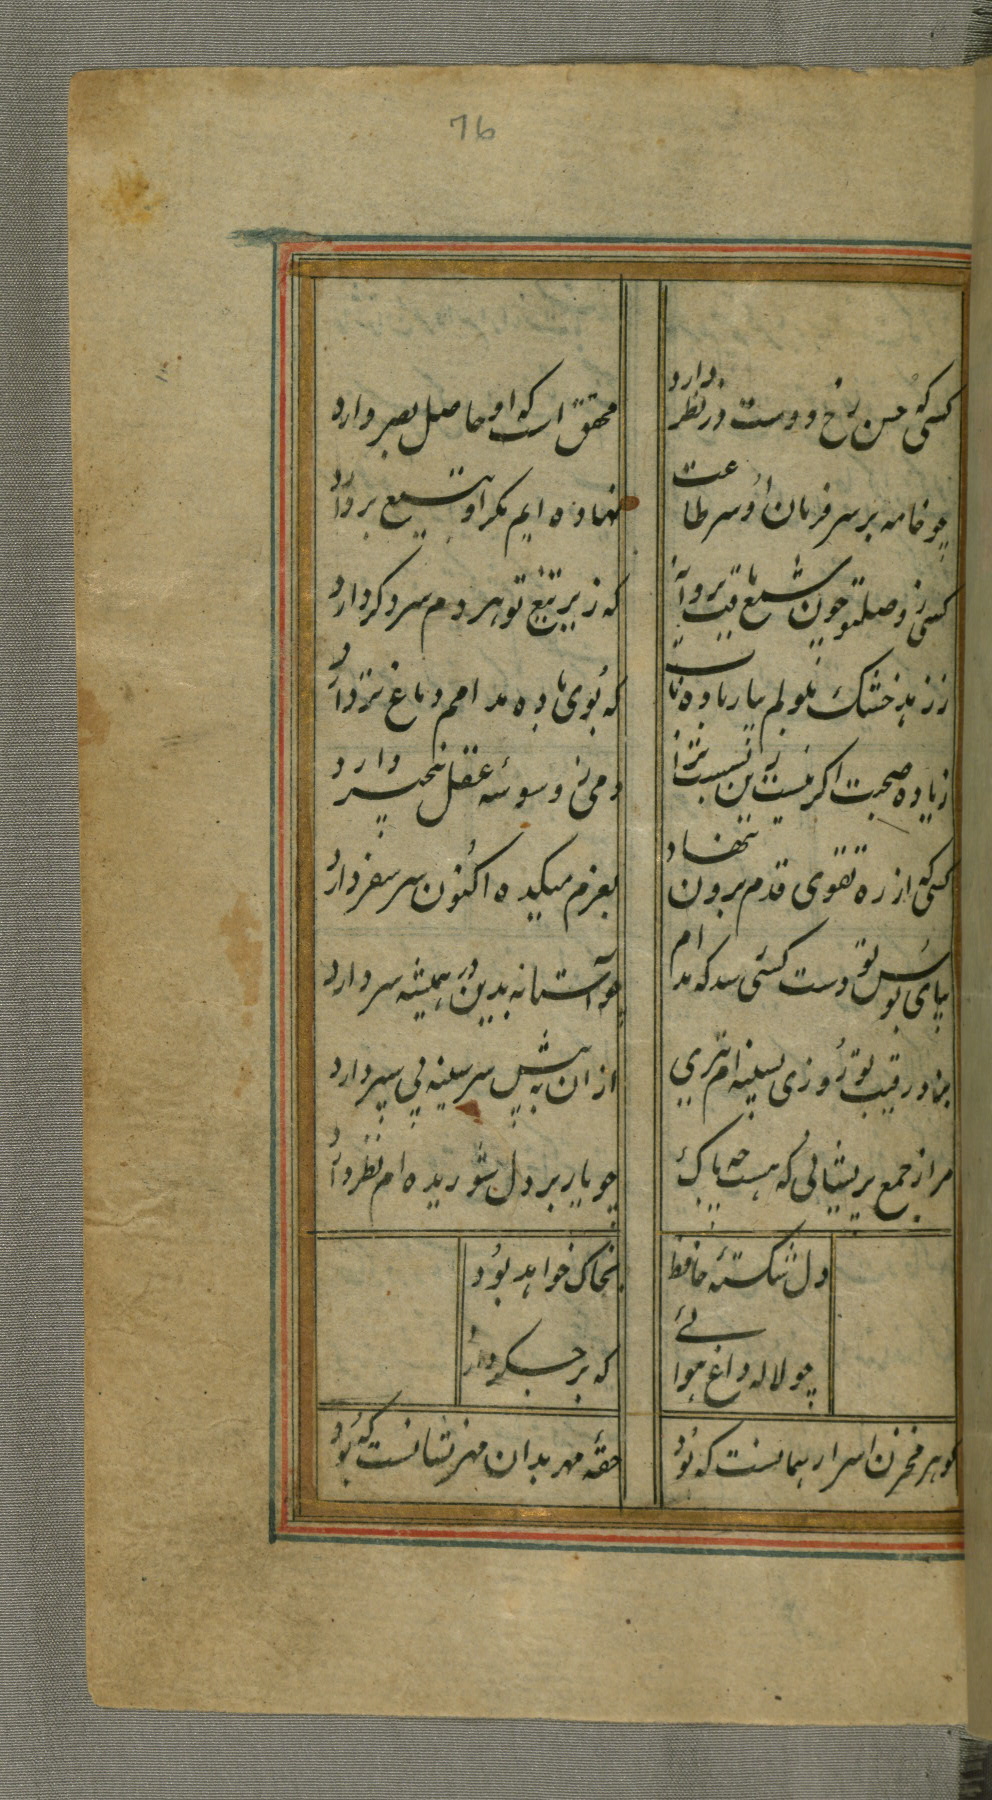 76
کسی که حسن رخ دوست در نظر دارد
محقق است که او حاصل بصر دارد
چو خامه بر سر فرمان او سر طاعت
نهاده ایم مگر او بتیغ بر دارد
کسی ز وصل تو چون شمع یافت پروانه
که زیر تیغ تو هر دم سر دگر دارد
ز زهد خشک ملولم بیار باده ناب
که بوی باده مدامم دماغ تر دارد
ز باده صحبت اگر نیست این نه بس ترا
دمی ز وسوسهٔ عقل بیخبر دارد
کسی که از ره تقوی قدم برون ننهاد
بعزم میکده اکنون سر سفر دارد
بپای بوس تو دست کسی رسد که مدام
چو آستانه بدین در همیشه سر دارد
بزد رقیب تو روزی بسینه ام تیری
از آن به پیش سر سینه بی سپر دارد
مرا ز جمع پریشانی که هست چه باک
چو یار بر دل شوریده ام نظر دارد
دل شکستهٔ حافظ
بخاک خواهد بود
چو لاله داغ هوائی
که بر جگر دارد
گوهر مخزن اسرار همانست که بود
حقهٔ مهر بدان مهر نشانست که بود